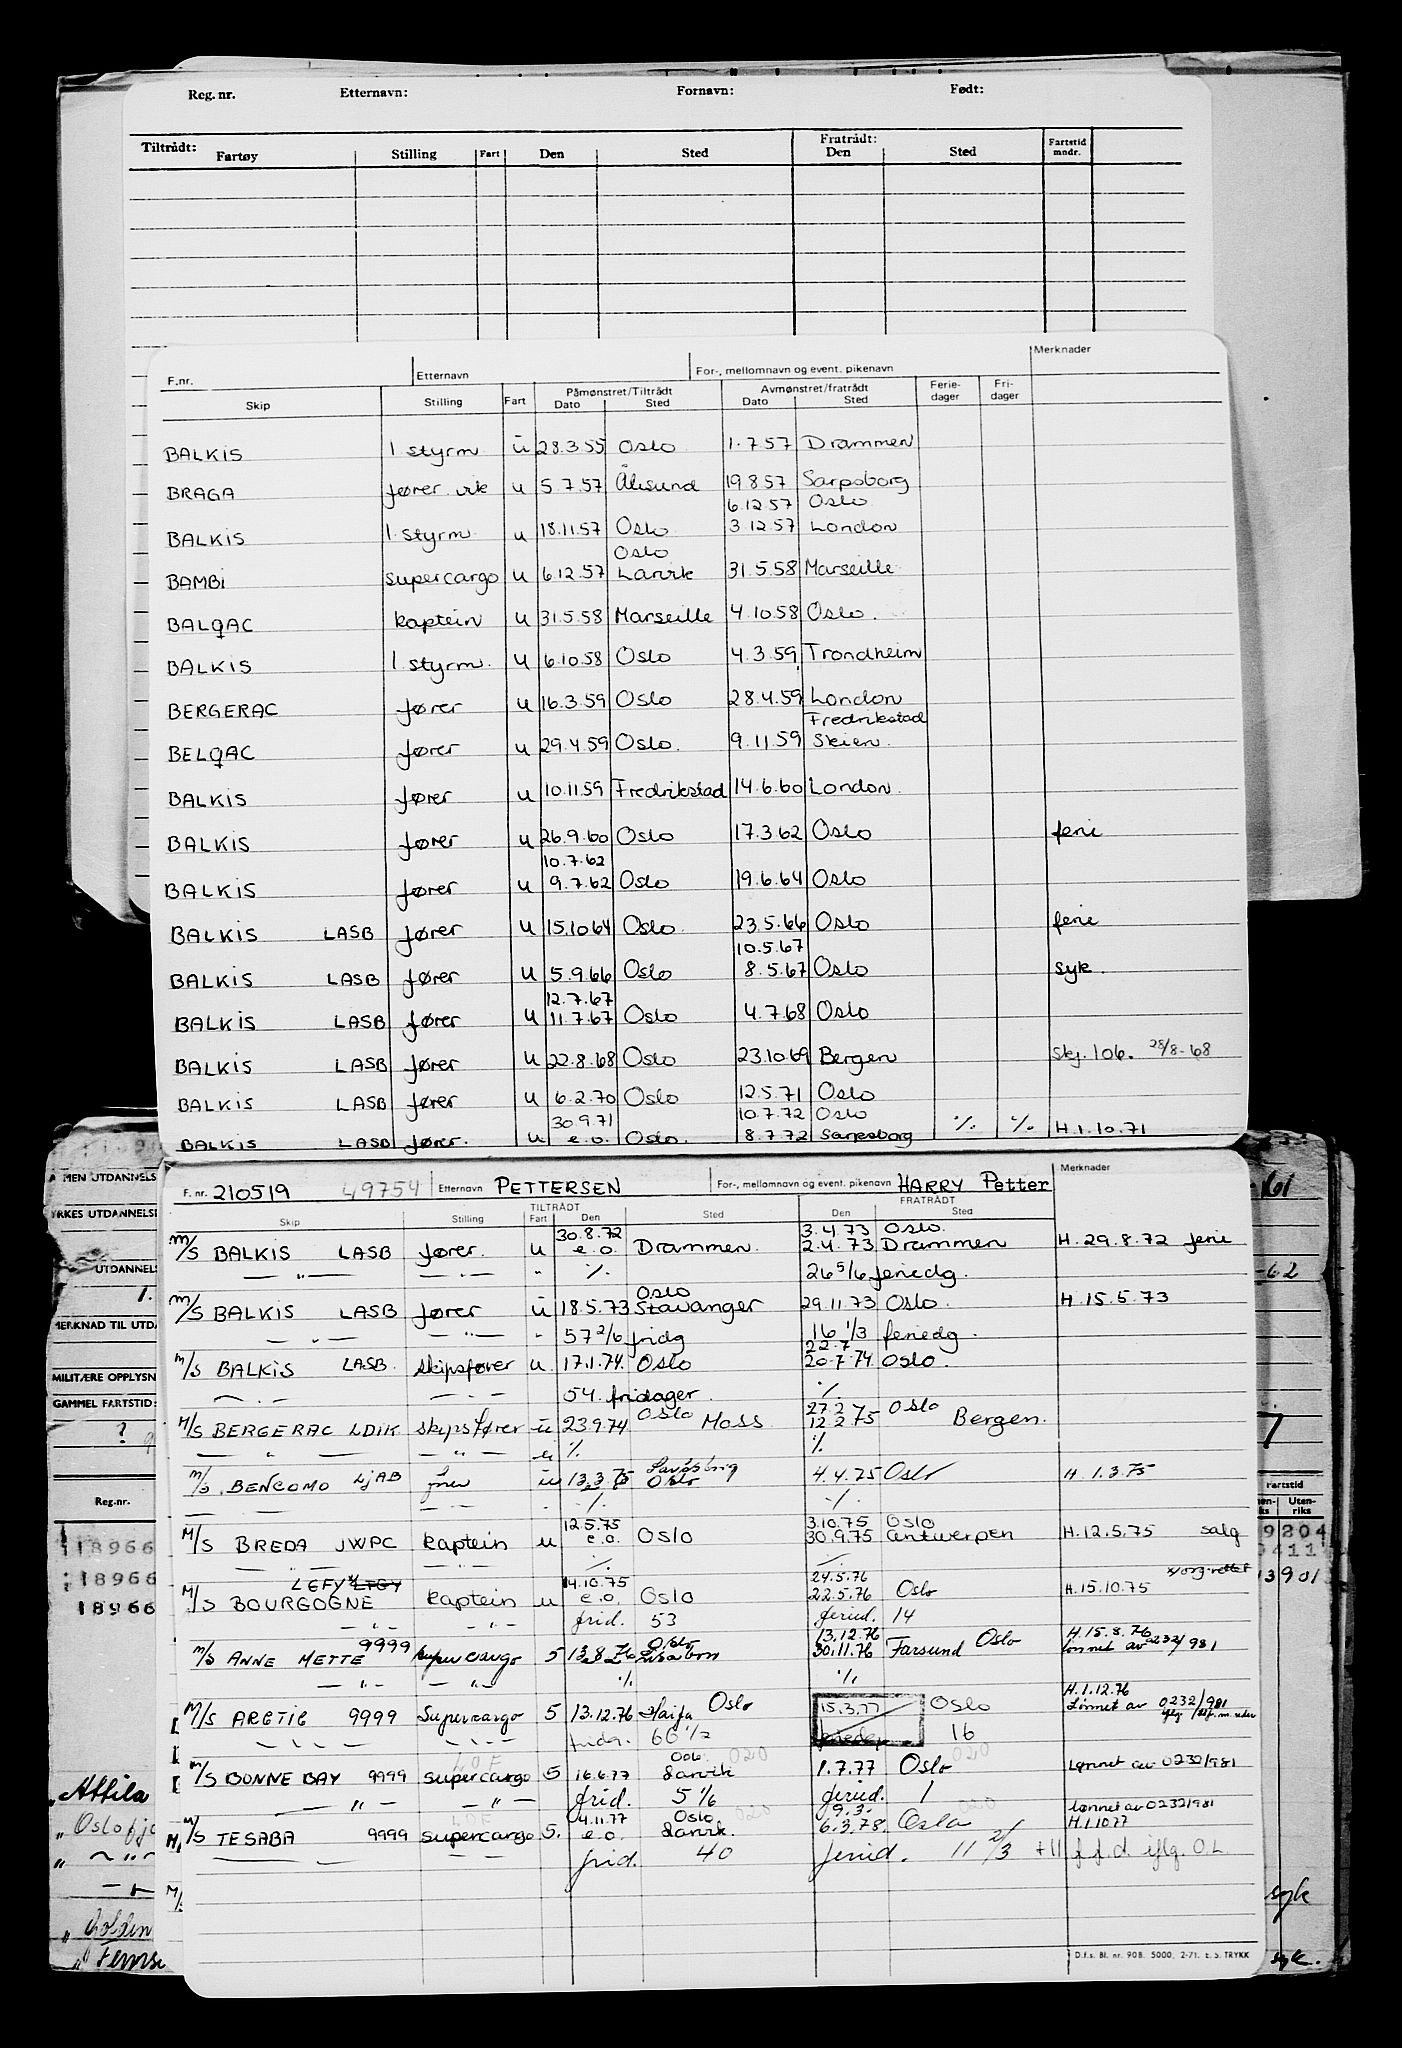 Reg. nr. Etternavn: Fornavn: Født:
Tiltrådt: Fratrådt:
Fartøy Stilling Fart Den Sted Den Sted Fartstid mndr.
F.nr. Etternavn For-, mellomnavn og event. pikenavn Merknader
Skip Stilling Fart Påmønstret/Tiltrådt Dato Sted Avmønstret/fratrådt Dato Sted Ferie-dager Fri-dager
BALKIS 1 styrm u 28.3.55 Oslo 1.7.57 Drammen
BRAGA fører vik u 5.7.57 Ålesund 19.8.57 Sarpsborg
6.12.57 Oslo
BALKIS 1. styrm u 18.11.57 Oslo 3.12.57 London
Oslo
BAMBI supercargo u 6.12.57 Larvik 31.5.58 Marseille
BALQAC kaptein u 31.5.58 Marseille 4.10.58 Oslo.
BALKIS 1. styrm. u 6.10.58 Oslo 4.3.59 Trondheim
BERGERAC fører u 16.3.59 Oslo 28.4.59 London
Fredrikstad
BELQAC fører u 29.4.59 Oslo. 9.11.59 Skien.
BALKIS fører u 10.11.59 Fredrikstad 14.6.60 London.
BALKIS fører u 26.9.60 Oslo 17.3.62 Oslo ferie
10.7.62
BALKIS fører u 9.7.62 Oslo 19.6.64 Oslo
BALKIS LASB fører u 15.10.64 Oslo 23.5.66 Oslo ferie
10.5.67
BALKIS LASB fører u 5.9.66 Oslo 8.5.67 Oslo syk.
12.7.67
BALKIS LASB fører u 11.7.67 Oslo 4.7.68 Oslo
BALKIS LASB fører u 22.8.68 Oslo 23.10.69 Bergen Skj. 106. 28/8-68
BALKIS LASB fører u 6.2.70 Oslo 12.5.71 Oslo
30.9.71 10.7.72 Oslo
BALKIS LASB fører. u e.o. Oslo. 8.7.72 Sarpsborg % % H.1.10.71
F. nr. 210519 49754 Etternavn PETTERSEN For-, mellomnavn og event. pikenavn HARRY Petter Merknader
TILTRÅDT FRATRÅDT
Skip Stilling Fart Den Sted Den Sted
30.8.72 3.4.73 Oslo.
M/S BALKIS LASB fører. u e.o. Drammen. 2.4.73 Drammen H. 29.8.72 ferie
— " — — " — " % 26 5/6 feriedg.
Oslo
M/S BALKIS LASB fører u 18.5.73 Stavanger 29.11.73 Oslo. H. 15.5.73
— " — — " — " 57 2/6 fridg 16 1/3 feriedg.
22.7
M/S BALKIS LASB. skipsfører u. 17.1.74. Oslo 20.7.74 Oslo.
54. fridager. %
27.2 Oslo
M/S BERGERAC LDIK skipsfører u 23.9.74 Oslo Moss 12.2.75 Bergen.
— " — — " — u % %
M/S BENCOMO LJAB u 13.3.75 Oslo 4.4.75 Oslo H. 1.3.75
% %
12.5.75 3.10.75 Oslo
M/S BREDA JWPC kaptein u e.o. Oslo 30.9.75 Antwerpen H.12.5.75 salg
% %
LEFY 14.10.75 24.5.76
M/S BOURGOGNE kaptein u e.o. Oslo 22.5.76 Oslo H.15.10.75
— " — — " — frid. 53 feried. 14
9999 Oslo 13.12.76 H.15.8.76
M/S ANNE METTE supercargo 5 30.11.76 Farsund Oslo lønnet av 0232/981
— " — — " — % %
H.1.12.76
M/S ARCTIC 9999 Supercargo 5 13.12.76 Haifa Oslo 15.3.77 Oslo Lønnet av 0232/981
fridr. 60 1/2 16
Oslo 020 020
M/S BONNE BAY 9999 supercargo 5 16.6.77 Larvik 1.7.77 Oslo Lønnet av 0232/981
— " — — " — frid. 5 1/6 feried. 1
4.11.77 Oslo 020 9.3. lønnet av 0232/981
M/S TESABA 9999 supercargo 5. e.o. Larvik. 6.3.78. Oslo H.1.10.77
frid. 40 feried. 11 2/3 +11 f.f.d. iflg. O.L.
D.f.s. Bl. nr. 908. 5000. 2-71. E. S. TRYKK
MEN UTDANNELS
YRKES UTDANNELSE
UTDANNELS
1.
MERKNAD TIL UTDA
MILITÆRE OPPLYSN
GAMMEL FARTSTID:
?
Reg.nr.
118966
118966
18966
Attila
" Oslofjo
" Golden
61
-62
7
Fartstid
Uten-riks
9204
0411
13901
syk
syk.